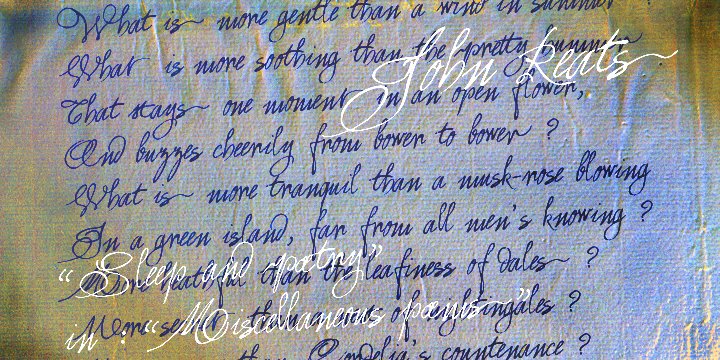 What is more gentle than a wind in summer
What is more soothing than the pretty hummer
John Keats
That stays one moment in an open flower,
And buzzes cheerily from bower to bower ?
What is more tranquil than a musk-rose blowing
In a green island, far from all men's knowing ?
More healthful than the leafiness of dales ?
"Sleep and poetry"
More secret than a nest of nightingales ?
in : "Miscellaneous poems"
than Cordelia's countenance ?